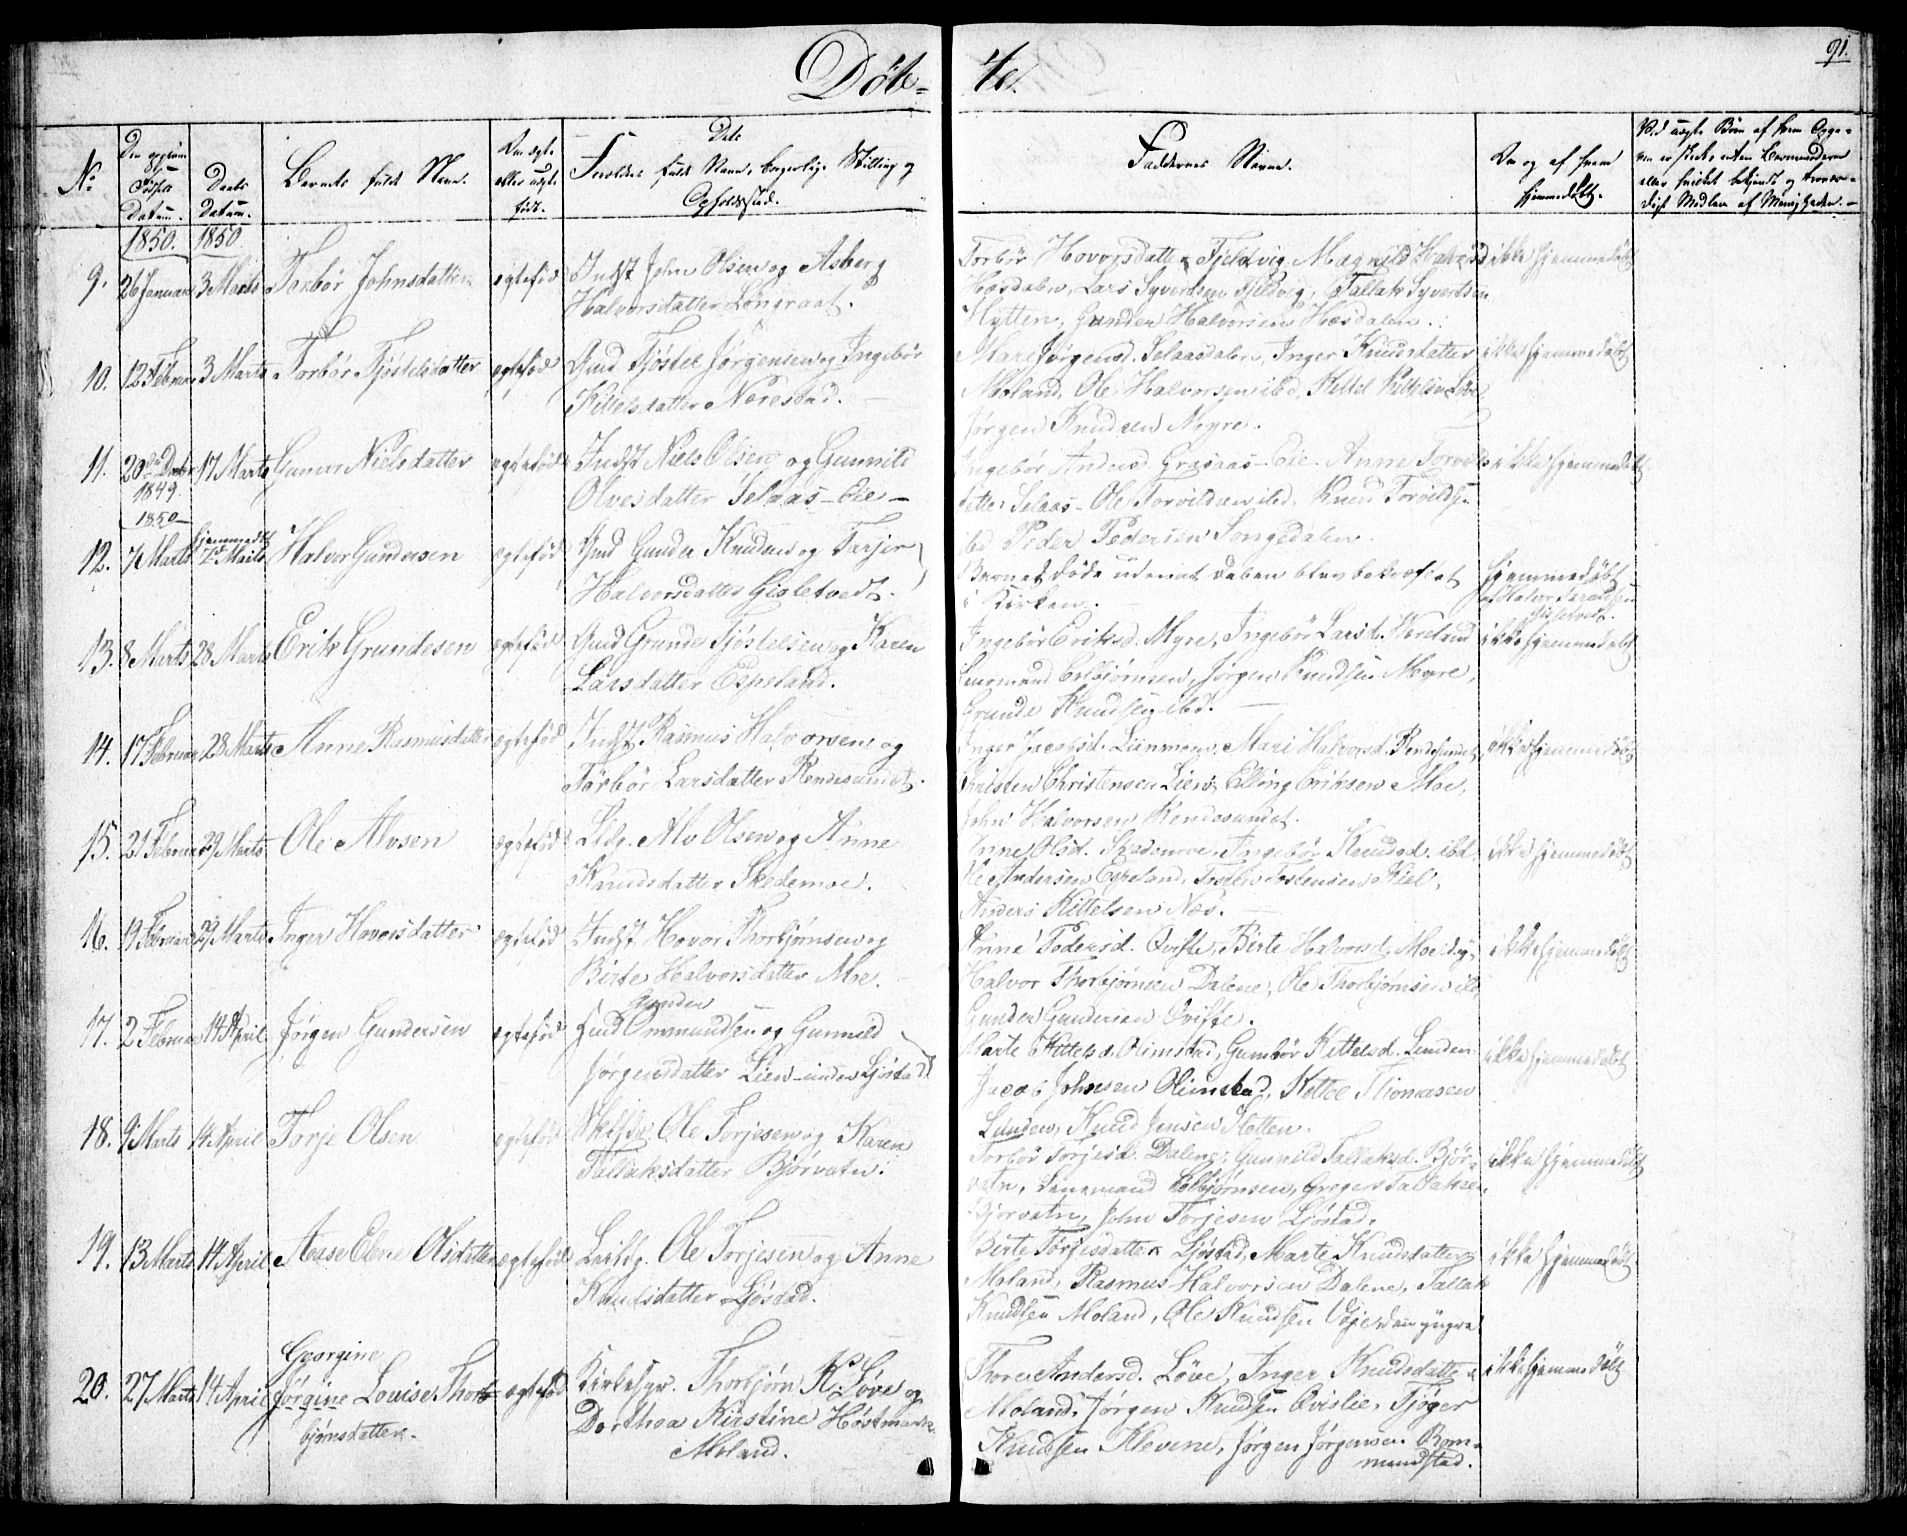 Døb=
te.
91.
No
Datum.
Daabs
Datum.
Barnets fulde Navn.
født.
Forældres fulde Navn, borgerlige Stilling og
Opholdssted.
Faddernes Navne.
Om og af hvem
hjemmedøbt.
1850. 1850.
9. 26 Januar 3 Marts Torbør Johnsdatter ægtefød Indst John Olsen og Asberg
Halvorsdatter Løngraat.
Torbør Hovorsdatter Fjeldvig, Magnild Halvorsd
Hæsdalen, Lars Syvertsen Fjeldvig, Tallak Syvertsen
Hytten, Gunder Halvorsen Hæsdalen.
ikke hjemmedøbt
10. 12 Februar 3 Marts Torbør Tjøstelsdatter ægtefød Gmd Tjøstel Jørgensen og Ingebør
Kittelsdatter Nærestad.
Mari Jørgensd. Selaasdalen, Inger Knudsdatter
Moland, Ole Halvorsen ibd, Kittel Kittelsen
Jørgen Knudsen Myre.
ikke hjemmedøbt
11. 20 1849 17 Marts Gunvor Nielsdatter ægtefød Indst Niels Olsen og Gunnild
Olvesdatter Selaas-Eie
Ingebør Andersd Græsaas-Eie. Anne Torvilds
datter Selaas - Ole Torvildsen ibd. Knud Torvilds.
ibd Peder Pedersen Songedalen.
ikke hjemmedøbt
1850
12. 7 Marts hjemmedøbt 7 Marts Halvor Gundersen ægtefød Gmd Gunder Knudsen og Tarjer
Halvorsdatter Gisletvedt.
Barnet døde uden at Daaben blev bekræftet
i Kirken.
hjemmedøbt
af Halvor
Gisletvedt.
13. 8 Marts 28 Marts Erik Grundesen ægtefød Gmd Grunde Tjøstelsen og Karen
Larsdatter Espeland.
Ingebør Eriksd. Myre, Ingebør Larsd.
Eelbjørnsen, Jørgen Knudsen Myre,
Grunde Knudsen ibd.
ikke hjemmedøbt
14. 17 Februar 28 Marts Anne Rasmusdatter ægtefød Indst Rasmus Halvorsen og
Torbør Larsdatter Rendesundet.
Inger Jacobsd. Mari Halvorsd. Rendesundet
Christen Christensen Lien, Elling Eriksen Moe,
John Halvorsen Rendesundet.
ikke hjemmedøbt
15. 21 Februar 29 Marts Ole Alvsen ægtefød Alv Olsen og Anne
Knudsdatter Skedemoe.
Anne Olsd. Skedemoe, Ingebør Knudsd. ibd.
Ole Andersen Espeland,
Anders Kittelsen Næs.
ikke hjemmedøbt
16. 19 Februar 29 Marts Inger Hovorsdatter ægtefød Indst Hovor Thorbjørnsen og
Birte Halvorsdatter Moe.
Anne Pedersd. Qvifte, Birte Halvorsd. Moe
Halvor Thorbjørnsen Dalene, Ole Thorbjørnsen ibd,
Gunder Gundersen Qvifte.
ikke hjemmedøbt
17. 2 Februar 14 April Jørgen Gundersen ægtefød Gmd Gunder Ommundsen og Gunnild
Jørgensdatter Lien under Ljøstad.
Marte Kittelsd. Olimstad, Gunbør Kittelsd. Lunden
Jacob Johnsen Olimstad, Kittel Thomasen
Lunden, Knud Jensen Sletten.
ikke hjemmedøbt
18. 9 Marts 14 April Torje Olsen ægtefød Ole Torjesen og Karen
Tallaksdatter Bjørvatn.
Torbør Torjesd. Dalene, Gunnild Tallaksd. Bjør=
vatn, Eelbjørnsen, Gregers Tallaksen
Bjørvatn, John Torjesen Ljøstad.
ikke hjemmedøbt
19. 13 Marts 14 April Aase Elene Olsdatter ægtefød Ole Torjesen og Anne
Knudsdatter Ljøstad.
Birte Torjesdatter Ljøstad, Marte Knudsdatter
Moland, Rasmus Halvorsen Dalene, Tallak
Knudsen Moland, Ole Knudsen Vøje den yngre
ikke hjemmedøbt
20. 27 Marts 14 April Georgine Jørgine Louise Thor-
bjørnsdatter. ægtefød Kirkesgr. Thorbjørn K Løve og
Dorthea Kirstine Høstmark
Moland.
Thore Andersd. Løve, Inger Knudsdatter
Moland, Jørgen Knudsen Qvislie, Tjøger
Knudsen Klevene, Jørgen Jørgensen Rom=
mundstad.
ikke hjemmedøbt